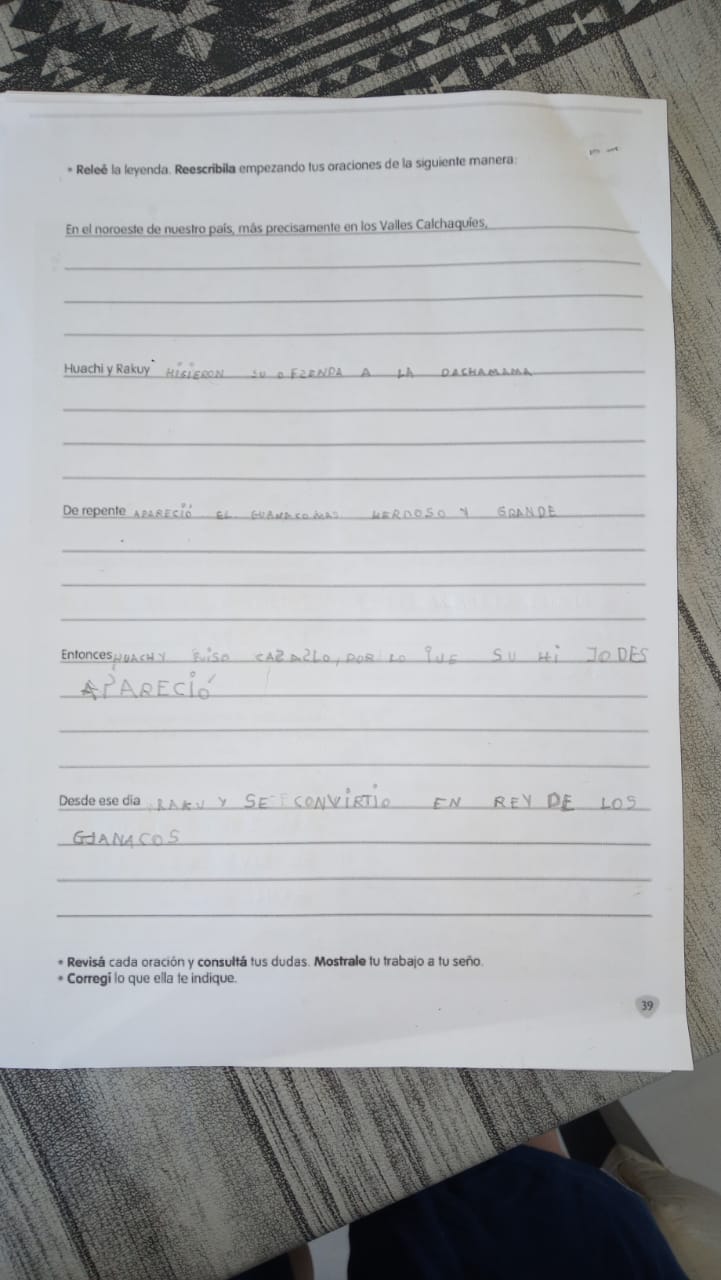 • Releé la leyenda. Reescribila empezando tus oraciones de la siguiente manera:
En el noroeste de nuestro país, más precisamente en los Valles Calchaquíes,
Huachi y Rakuy HISIERON SU OFRENDA A LA PACHAMAMA
De repente APARECIÓ EL GUANACO MAS HERMOSO Y GRANDE
Entonces HUACHY QUISO CAZARLO, POR LO QUE SU HIJO DES
APARECIÓ
Desde ese día RAKUY SE CONVIRTIO EN REY DE LOS
GUANACOS
• Revisá cada oración y consultá tus dudas. Mostrale tu trabajo a tu seño.
• Corregí lo que ella te indique.
39